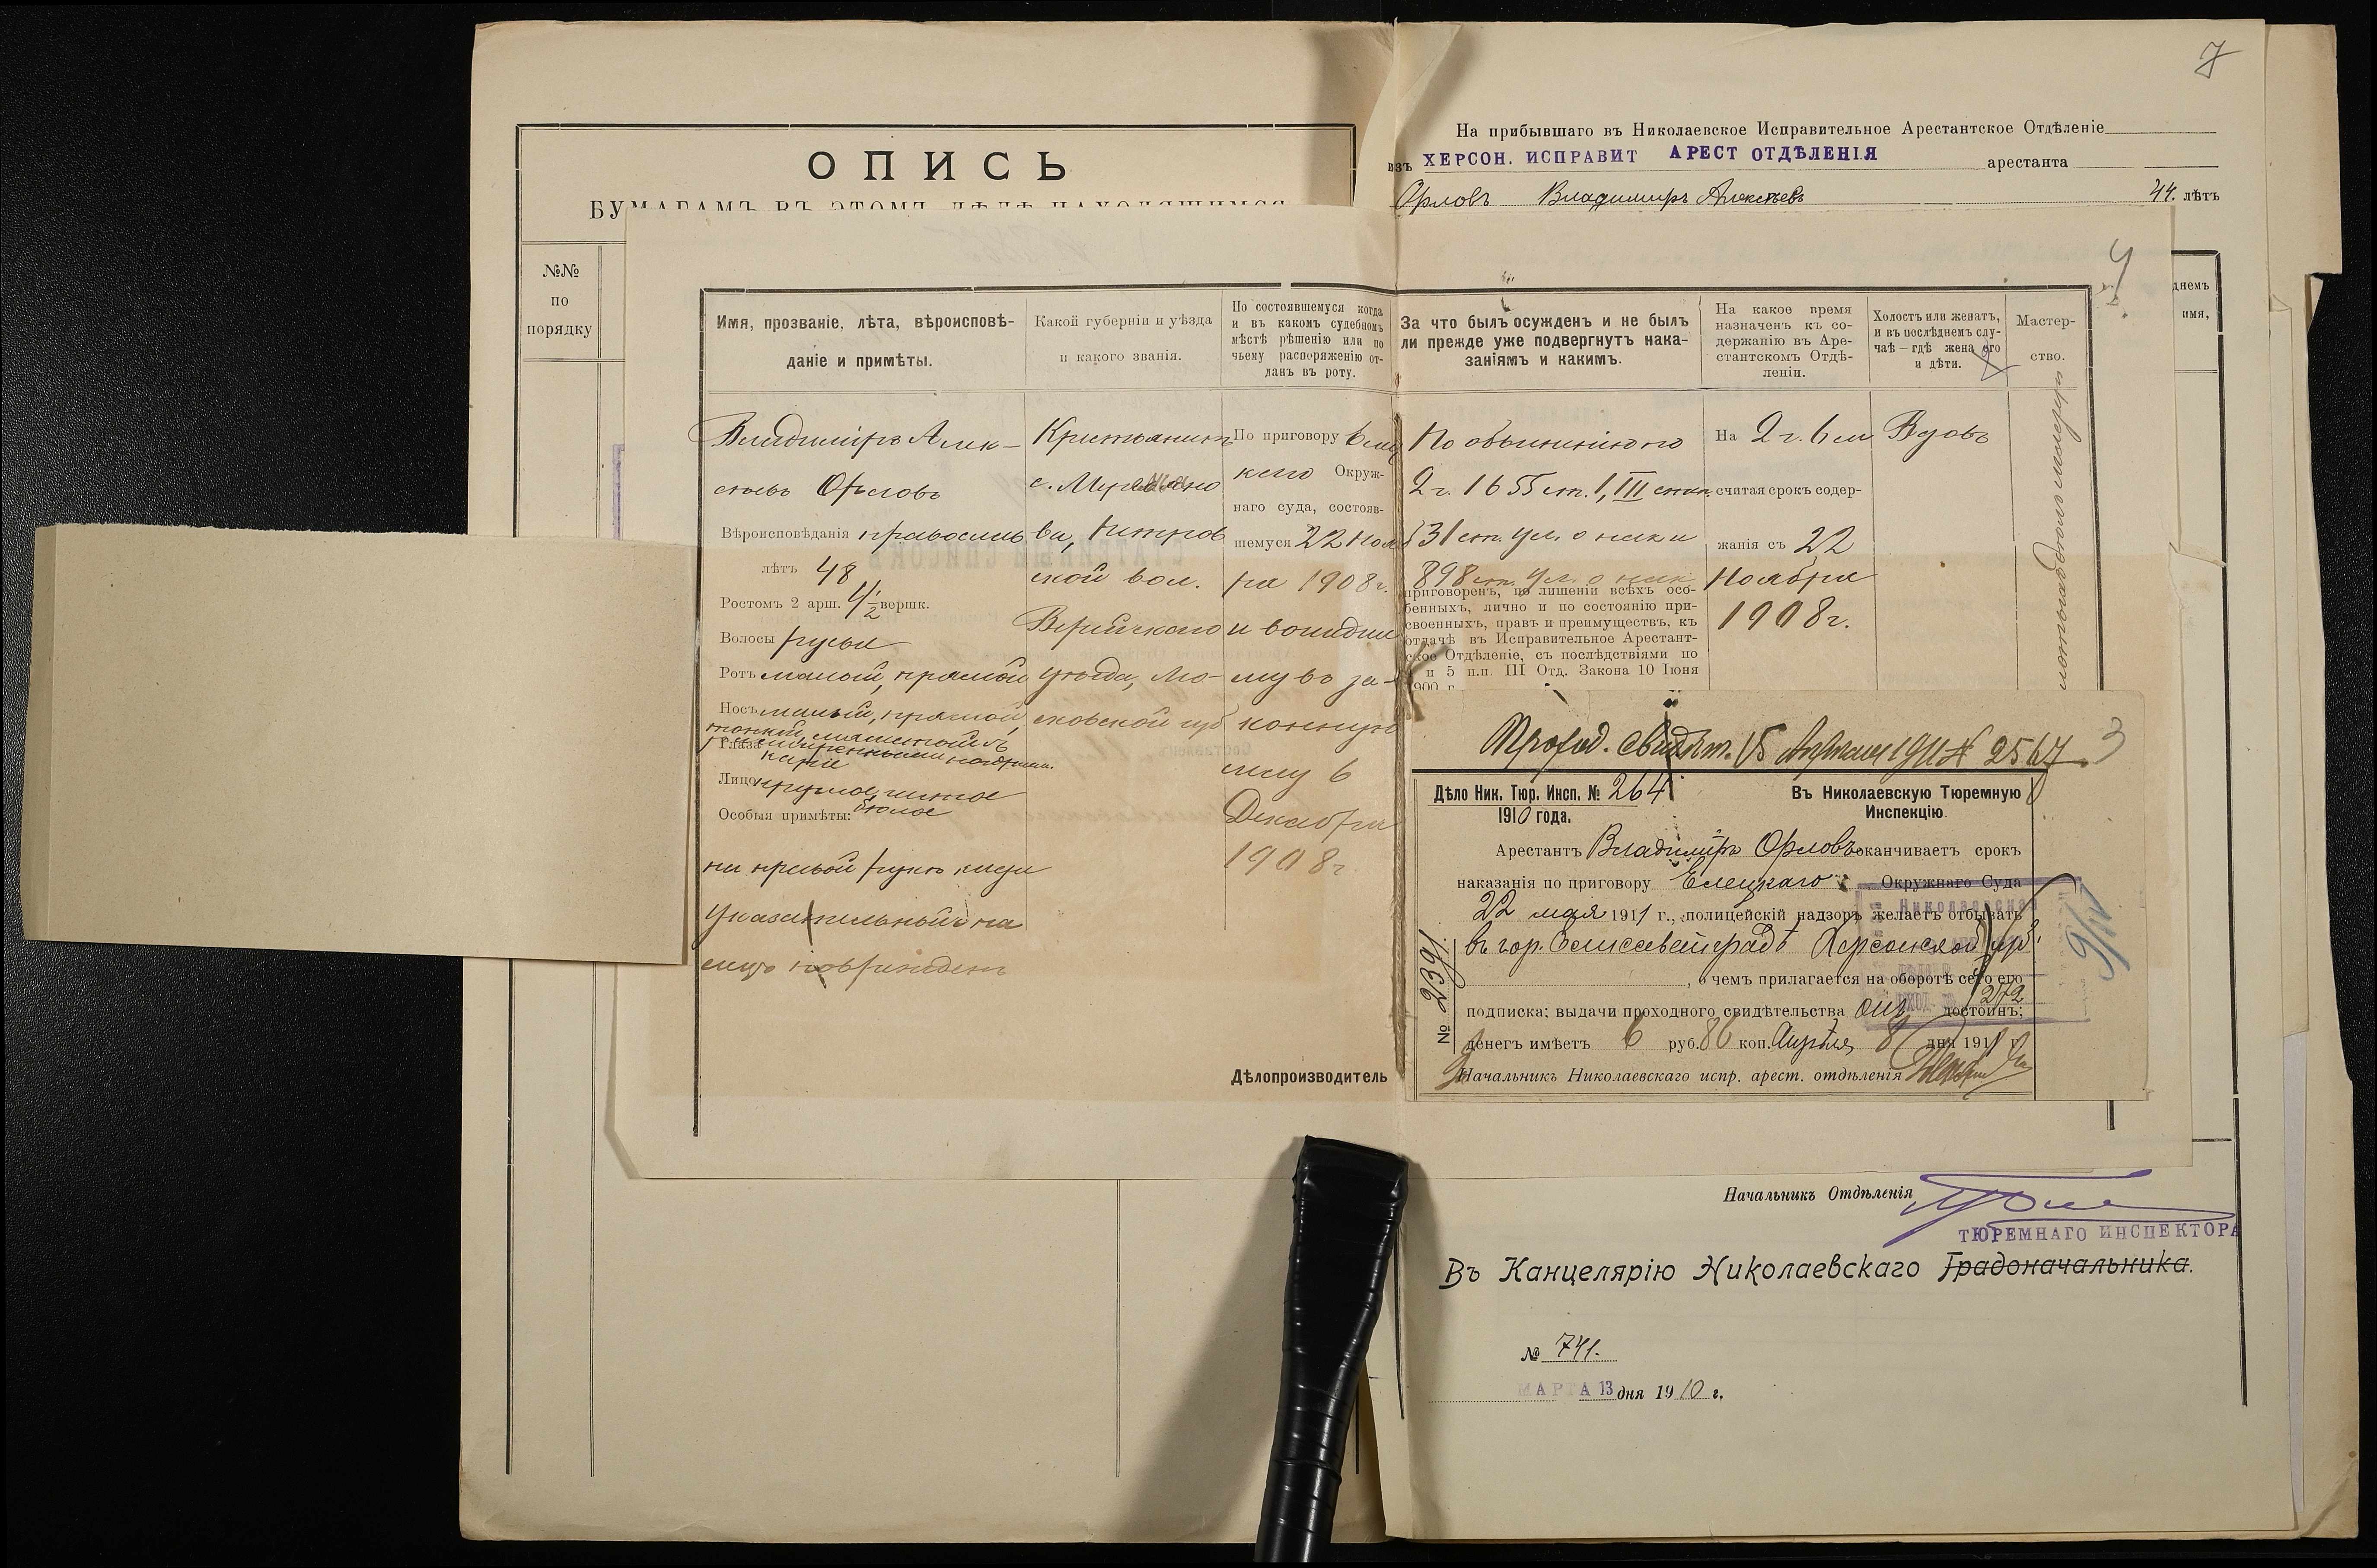 7
ОПИСЬ
БУМАГАМЪ ВЪ ЭТОМЪ ДѢЛѢ НАХОДЯЩИМСЯ
№№
по
порядку
На прибывшаго въ Николаевское Исправительное Арестантское Отдѣленіе
изъ ХЕРСОН. ИСПРАВИТ АРЕСТ ОТДѢЛЕНІЯ арестанта
Орловъ Владимиръ Алексѣевъ 44. лѣтъ
днемъ
имя,
4
Имя, прозваніе, лѣта, вѣроисповѣ-
даніе и примѣты.
Владиміръ Алек-
сѣевъ Орловъ
Вѣроисповѣданія православ
лѣтъ 48
Ростомъ 2 арш. 4½ вершк.
Волосы русые
Ротъ малый, прямой
Носъ малый, прямой,
Глаза каріе
Лицо круглое, чистое
бѣлое
Особыя примѣты:
на правой рукѣ
указательный па
лецъ поврежденъ
Какой губерніи и уѣзда
и какого званія.
Крестьянинъ
с.
ва, Петров
ской вол.
Верейскаго
уѣзда, Мо-
сковской губ
По состоявшемуся когда
и въ какомъ судебномъ
мѣстѣ рѣшенію или по
чьему распоряженію от-
данъ въ роту.
По приговору Елец
каго Окруж-
наго суда, состояв-
шемуся 22 Нояб
ря 1908 г.
и вошедше
му въ за-
конную
силу 6
Декабря
1908 г
За что былъ осужденъ и не былъ
ли прежде уже подвергнутъ нака-
заніямъ и какимъ.
По обвиненію по
2 ч. 1655 ст. 1, III степ.
31 ст. Ул. о нак и
898 ст. Ул. о нак
приговоренъ, по лишеніи всѣхъ осо-
бенныхъ, лично и по состоянію при-
своенныхъ, правъ и преимуществъ, къ
отдачѣ въ Исправительное Арестант-
ское Отдѣленіе, съ послѣдствіями по
и 5 п.п. III Отд. Закона 10 Іюня
1900 г
На какое время
назначенъ къ со-
держанію въ Аре-
стантскомъ Отдѣ-
леніи.
На 2 г. 6 м
считая срокъ содер-
жанія съ 22
Ноября
1908 г.
Холостъ или женатъ,
и въ послѣднемъ слу-
чаѣ – гдѣ жена его
и дѣти.
Вдовъ
Мастер-
ство.
Дѣлопроизводитель
Проход. свидѣт. 15 Апрѣля 1911 № 2567
3
Дѣло Ник. Тюр. Инсп. № 264
1910 года.
Въ Николаевскую Тюремную
Инспекцію.
Арестантъ Владиміръ Орловъ оканчиваетъ срокъ
наказанія по приговору Елецкаго Окружнаго Суда
22 мая 1911 г., полицейскій надзоръ желаетъ отбывать
въ гор. Елисаветградѣ Херсонской губ.
, о чемъ прилагается на оборотѣ сего его
подписка; выдачи проходного свидѣтельства онъ достоинъ;
денегъ имѣетъ 6 руб. 86 коп. Апрѣля 8 дня 1911 г
Начальникъ Николаевскаго испр. арест. отдѣленія
№ 2639
272
9/IV
Начальникъ Отдѣленія
ТЮРЕМНАГО ИНСПЕКТОРА
Въ Канцелярію Николаевскаго Градоначальника.
№ 741.
МАРТА 13 дня 1910 г.